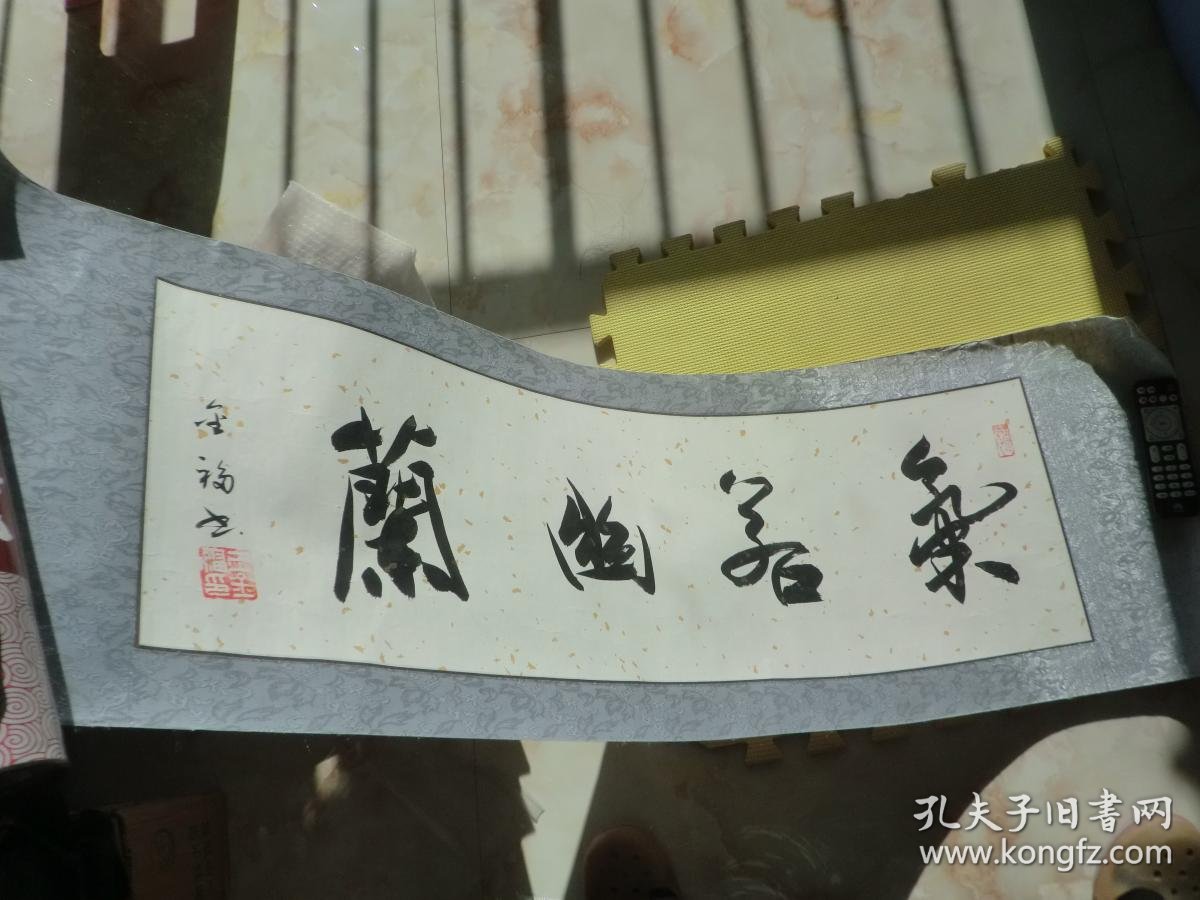 氣若幽蘭
金福书
孔夫子旧书网
www.kongfz.com